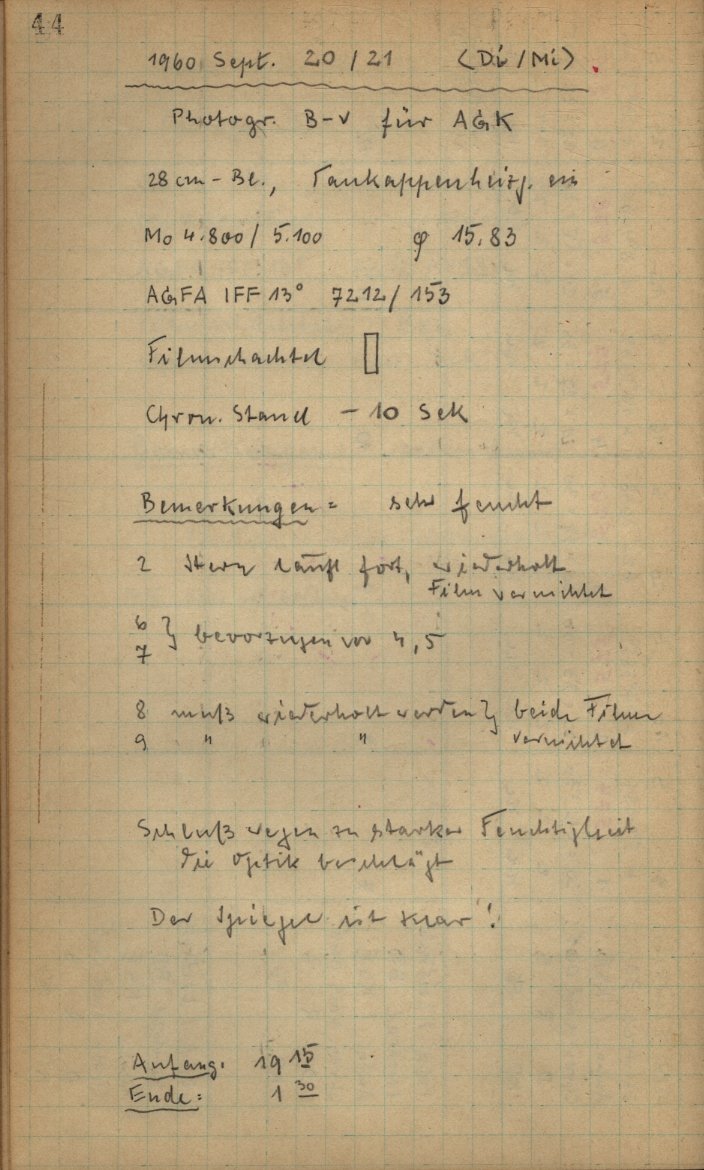 44
1960 Sept. 20/21 (Di/Mi)
Photogr. B-V für AGK
28 cm-Bl., Taukappenheizg. ein
Mo 4.800/5.100 φ 15.83
AGFA IFF 13° 7212/153
Filmschachtel
Chron. Stand - 10 Sek
Bemerkungen: sehr feucht
2 Stern läuft fort, wiederholt
Film vernichtet
6
7 } bevorzugen vor 4,5
8 muß wiederholt werden } beide Filme
9 " " vernichtet
Schluß wegen zu starker Feuchtigkeit
die Optik beschlägt
Der Spiegel ist klar!
Anfang: 19 15
Ende: 1 30